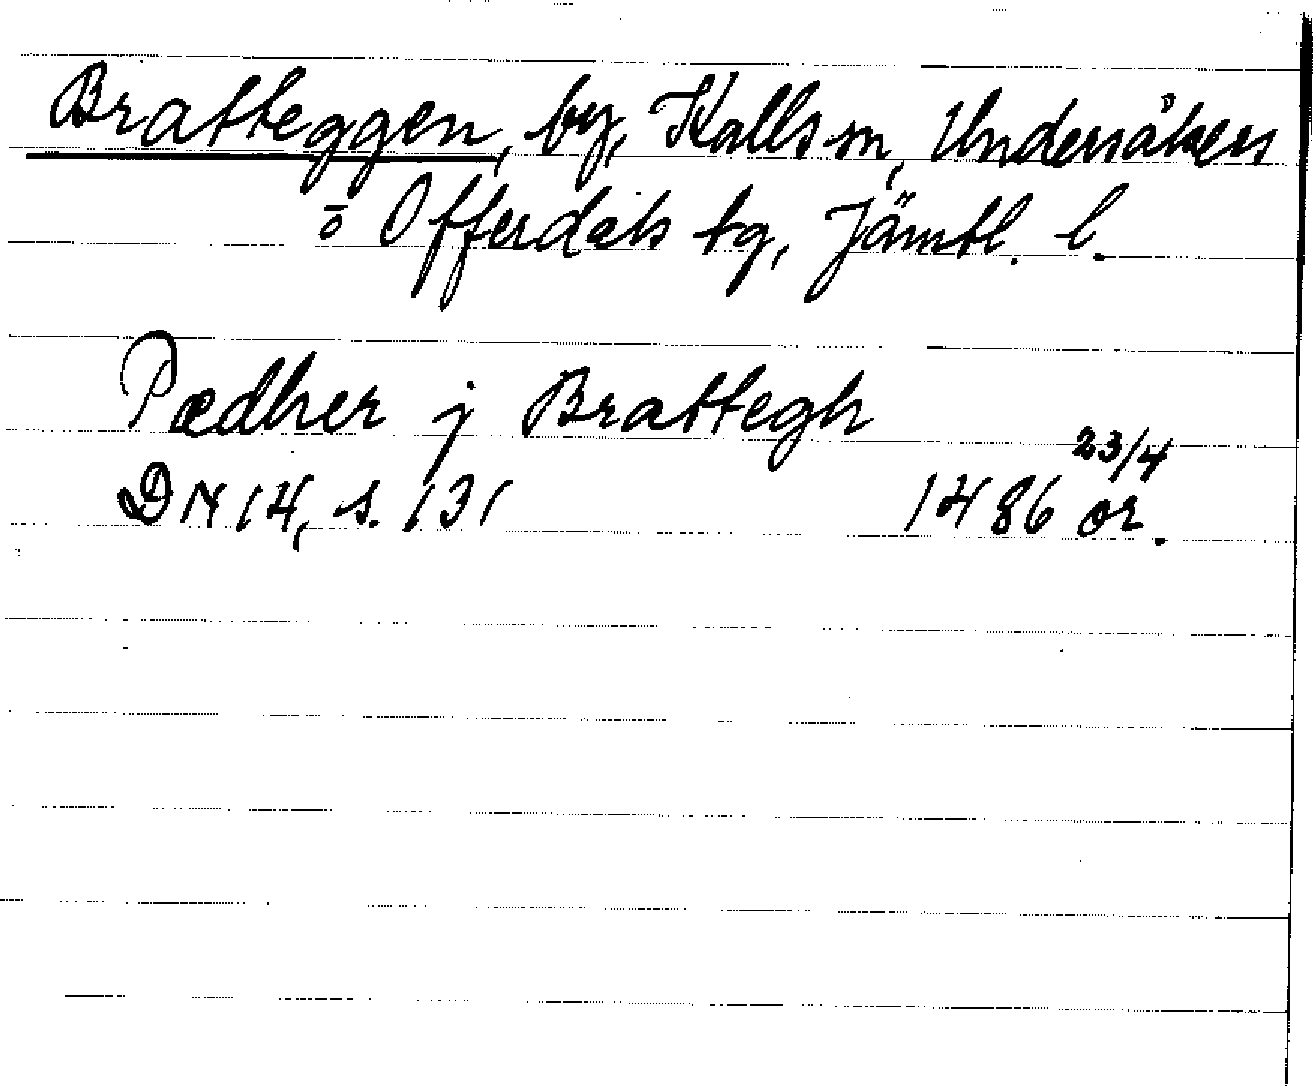 Bratteggen, by, Kalls sn, Undersåkers
o Offerdals tg, Jämtl. l.
Pædher j Brattegh
23/4
DN 14, s. 131 1486 or.